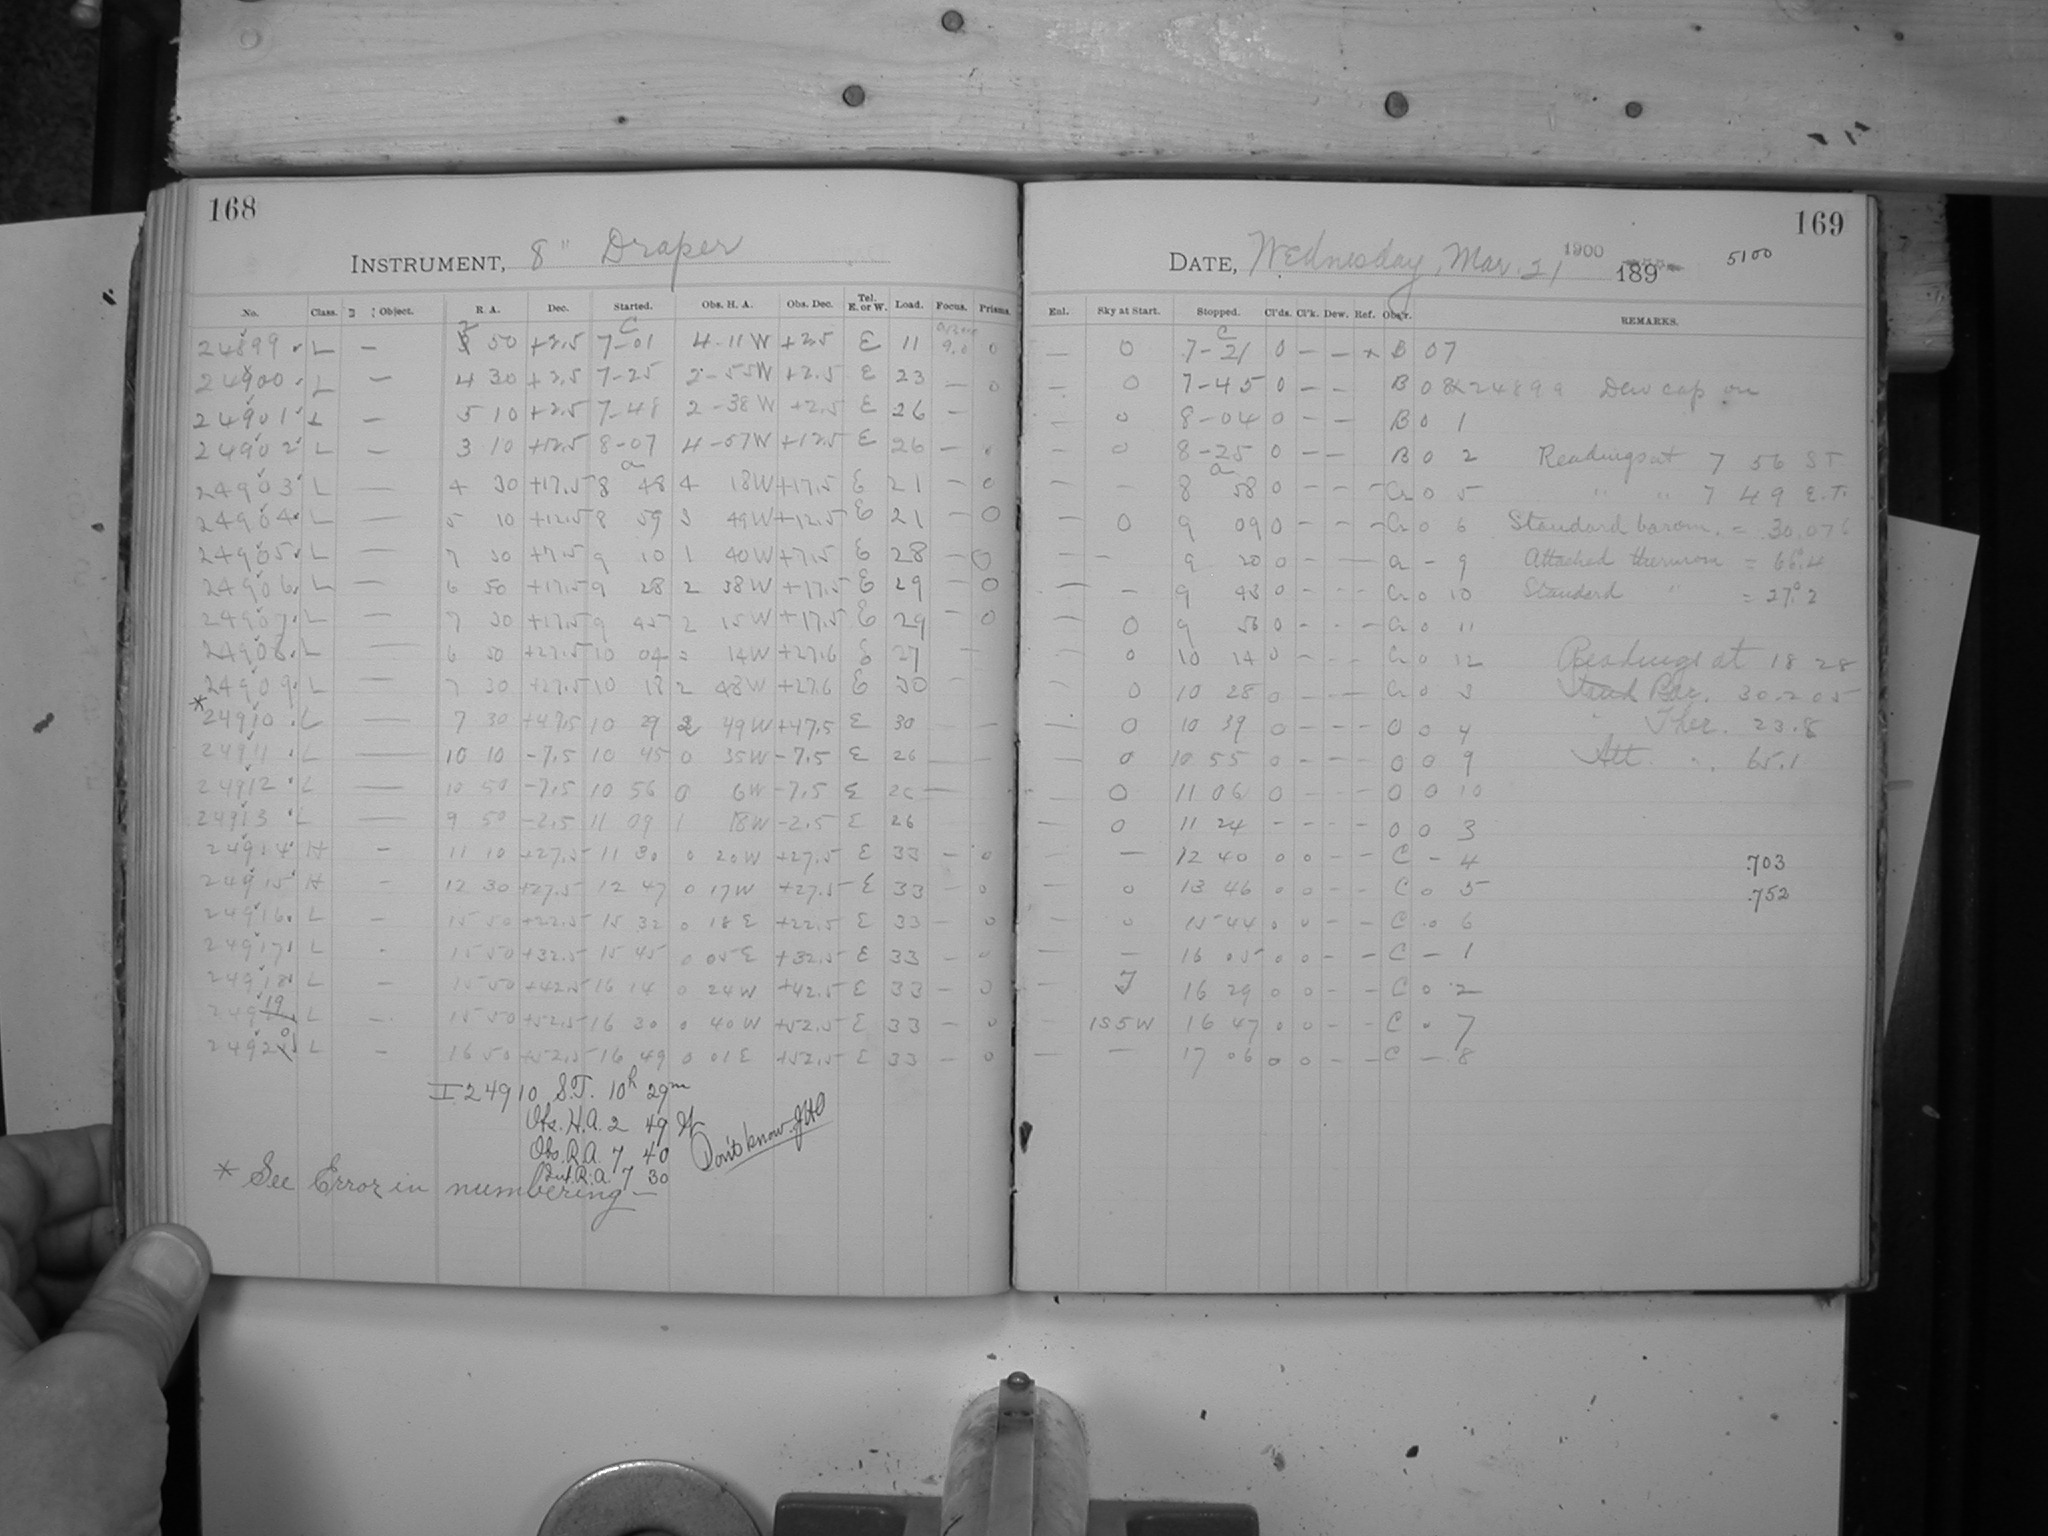 168
INSTRUMENT, 8" Draper
No. Class. Object. R. A. Dec. Started. Obs. H. A. Obs. Dec. Tel. E. or W. Load. Focus. Prisms.
24899 L — 50 +2.5 7-01 4-11 W +2.5 E 11 9.0 0
24900 L — 4 30 +2.5 7-25 2-55W +2.5 E 23 — 0
24901 L — 5 10 +2.5 7-48 2-38 W +2.5 E 26 —
24902 L — 3 10 +12.5 8-07 4-57W +12.5 E 26 —
24903 L — 4 30 +17.5 8 48 4 18W +17.5 E 21 — 0
24904 L — 5 10 +12.5 8 59 3 49W +12.5 E 21 — 0
24905 L — 7 30 +7.5 9 10 1 40W +7.5 E 28 — 0
24906 L — 6 50 +17.5 9 28 2 38W +17.5 E 29 — 0
24907 L — 7 30 +17.5 9 45 2 15W +17.5 E 29 — 0
24908 L — 6 50 +27.5 10 04 14W +27.6 E 27 —
24909 L — 7 30 +27.5 10 18 2 48W +27.6 E 30 —
*24910 L — 7 30 +47.5 10 29 2 49W +47.5 E 30 — —
24911 L — 10 10 -7.5 10 45 0 35W -7.5 E 26 — —
24912 L — 10 50 -7.5 10 56 0 6W -7.5 E 26 —
24913 L — 9 50 -2.5 11 09 1 18W -2.5 E 26
24914 H — 11 10 +27.5 11 30 0 20W +27.5 E 33 — 0
24915 H — 12 30 +27.5 12 47 0 17W +27.5 E 33 — 0
24916 L — 15 50 +22.5 15 32 0 18 E +22.5 E 33 — 0
24917 L - 15 50 +32.5 15 45 0 05 E +32.5 E 33 — 0
24918 L — 15 50 +42.5 16 14 0 24W +42.5 E 33 — 0
24919 L — 15 50 +52.5 16 30 0 40W +52.5 E 33 — 0
24920 L — 16 50 +52.5 16 49 0 01 E +52.5 E 33 — 0
I 24910 S.T. 10h 29m
Obs. H.A. 2 49 W
Obs. R.A. 7 40
Int. R.A. 7 30
Don't know. JHO
* See Error in numbering —
169
DATE, Wednesday, Mar. 21 1900 189
5100
Enl. Sky at Start. Stopped. Cl'ds. Cl'k. Dew. Ref. Obs'r. REMARKS.
— 0 7-21 0 — — B 07
— 0 7-45 0 — — B 0 8 24899 Dew cap on
— 0 8-04 0 — — B 0 1
— 0 8-25 0 — — B 0 2 Readings at 7 56 ST
— — 8 58 0 - - - Cr 0 5 " " 7 49 E.T.
— 0 9 09 0 - - - Cr 0 6 Standard barom. = 30.076
— — 9 20 0 - — a - 9 Attached thermom =
— — 9 43 0 - - - Cr 0 10 Standard " = 27.2
— 0 9 56 0 - - - Cr 0 11
— 0 10 14 0 - - - Cr 0 12 Readings at 18 28
— 0 10 28 0 - - - Cr 0 3 Stand Bar. 30.205
— 0 10 39 0 - - - O 0 4 " Ther. 23.8
— 0 10 55 0 - - - O 0 9 Att. " 65.1
— 0 11 06 0 - - - O 0 10
— 0 11 24 - - - - O 0 3
— 12 40 0 0 - - C - 4 .703
0 13 46 0 0 - - C 0 5 .752
— 0 15 44 0 0 - - C 0 6
— — 16 05 0 0 - - C — 1
— 16 29 0 0 - - C 0 2
— 1S5W 16 47 0 0 - - C 0 7
— — 17 06 0 0 - - C — 8